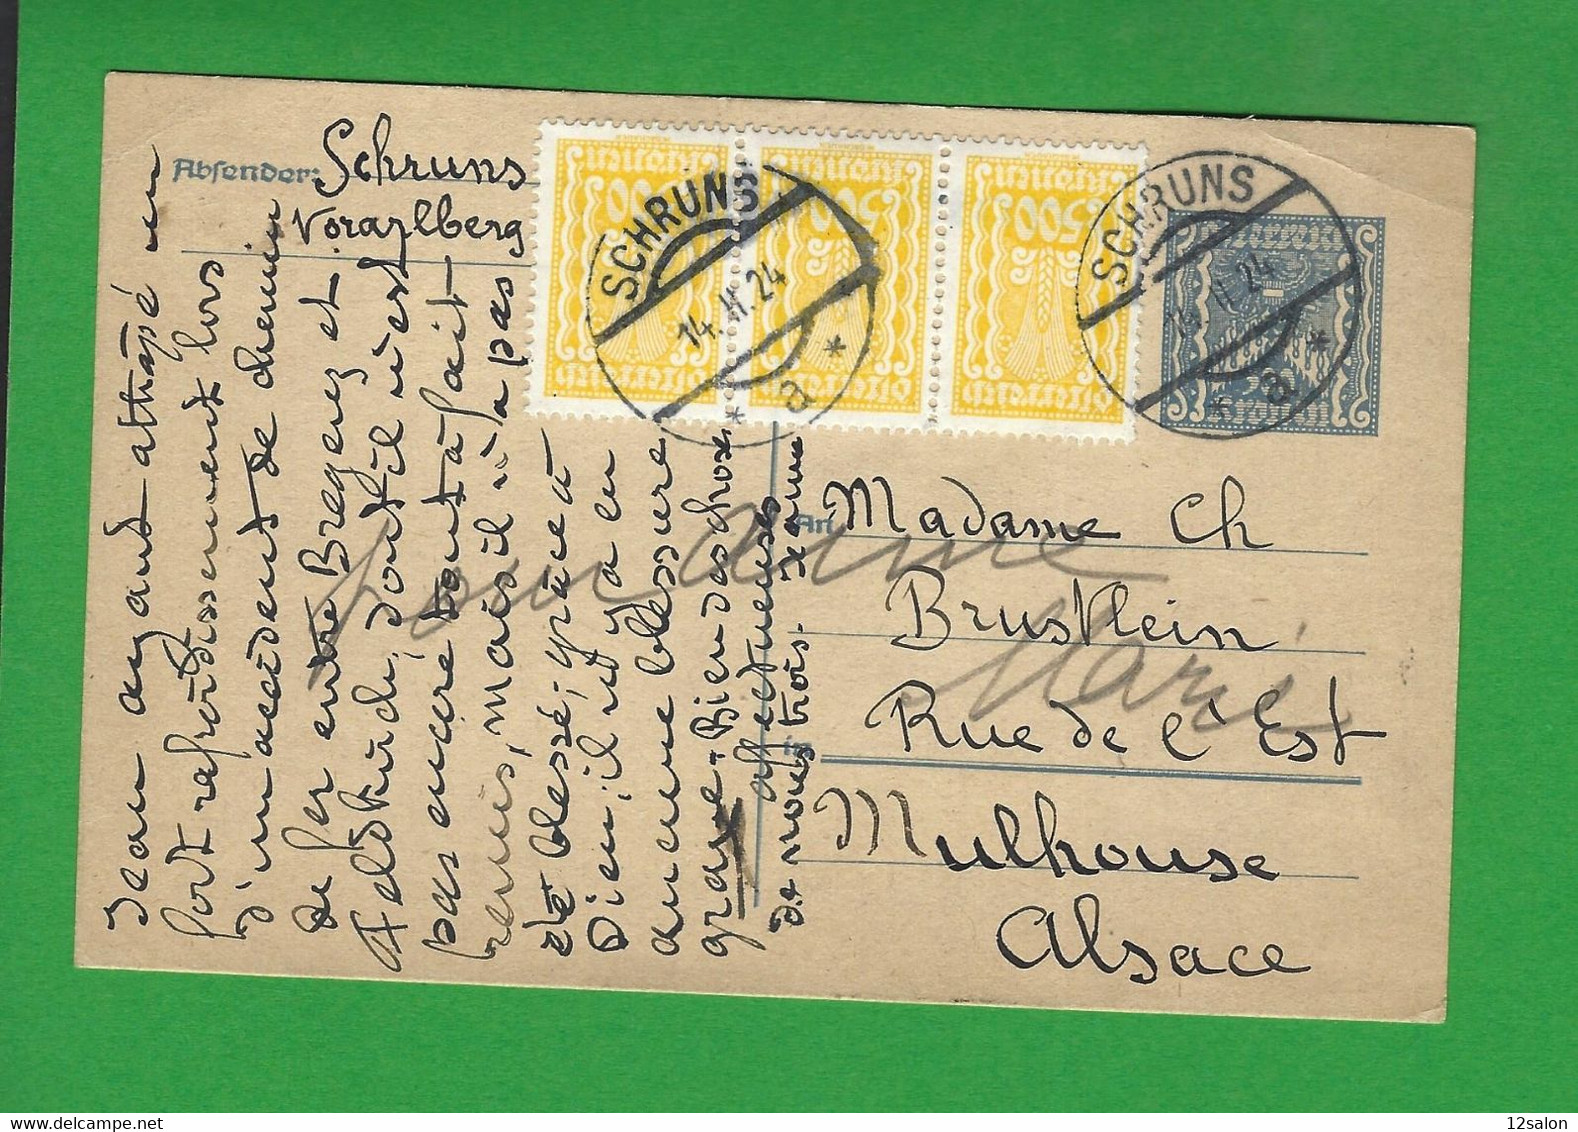 Absender: Schruns
Vorarlberg
Jean ayant attrapé un
fort refroidissement lors
d'un accident de chemin
de fer entre Bregenz et
Feldkirch, dont il n'est
pas encore tout à fait
remis, mais il n'a pas
été blessé, grâce à
Dieu, il n'y a eu
aucune blessure
grave. Bien des choses
affectueuses
de nous trois.
SCHRUNS
14. II. 24
* a *
500
Kronen
Österreich
500
Kronen
Österreich
500
Kronen
Österreich
SCHRUNS
14. II. 24
* a *
Österreich
Kronen
An Madame Ch
Brustlein
Rue de l'Est
in
Mulhouse
Alsace
Marie
12salon